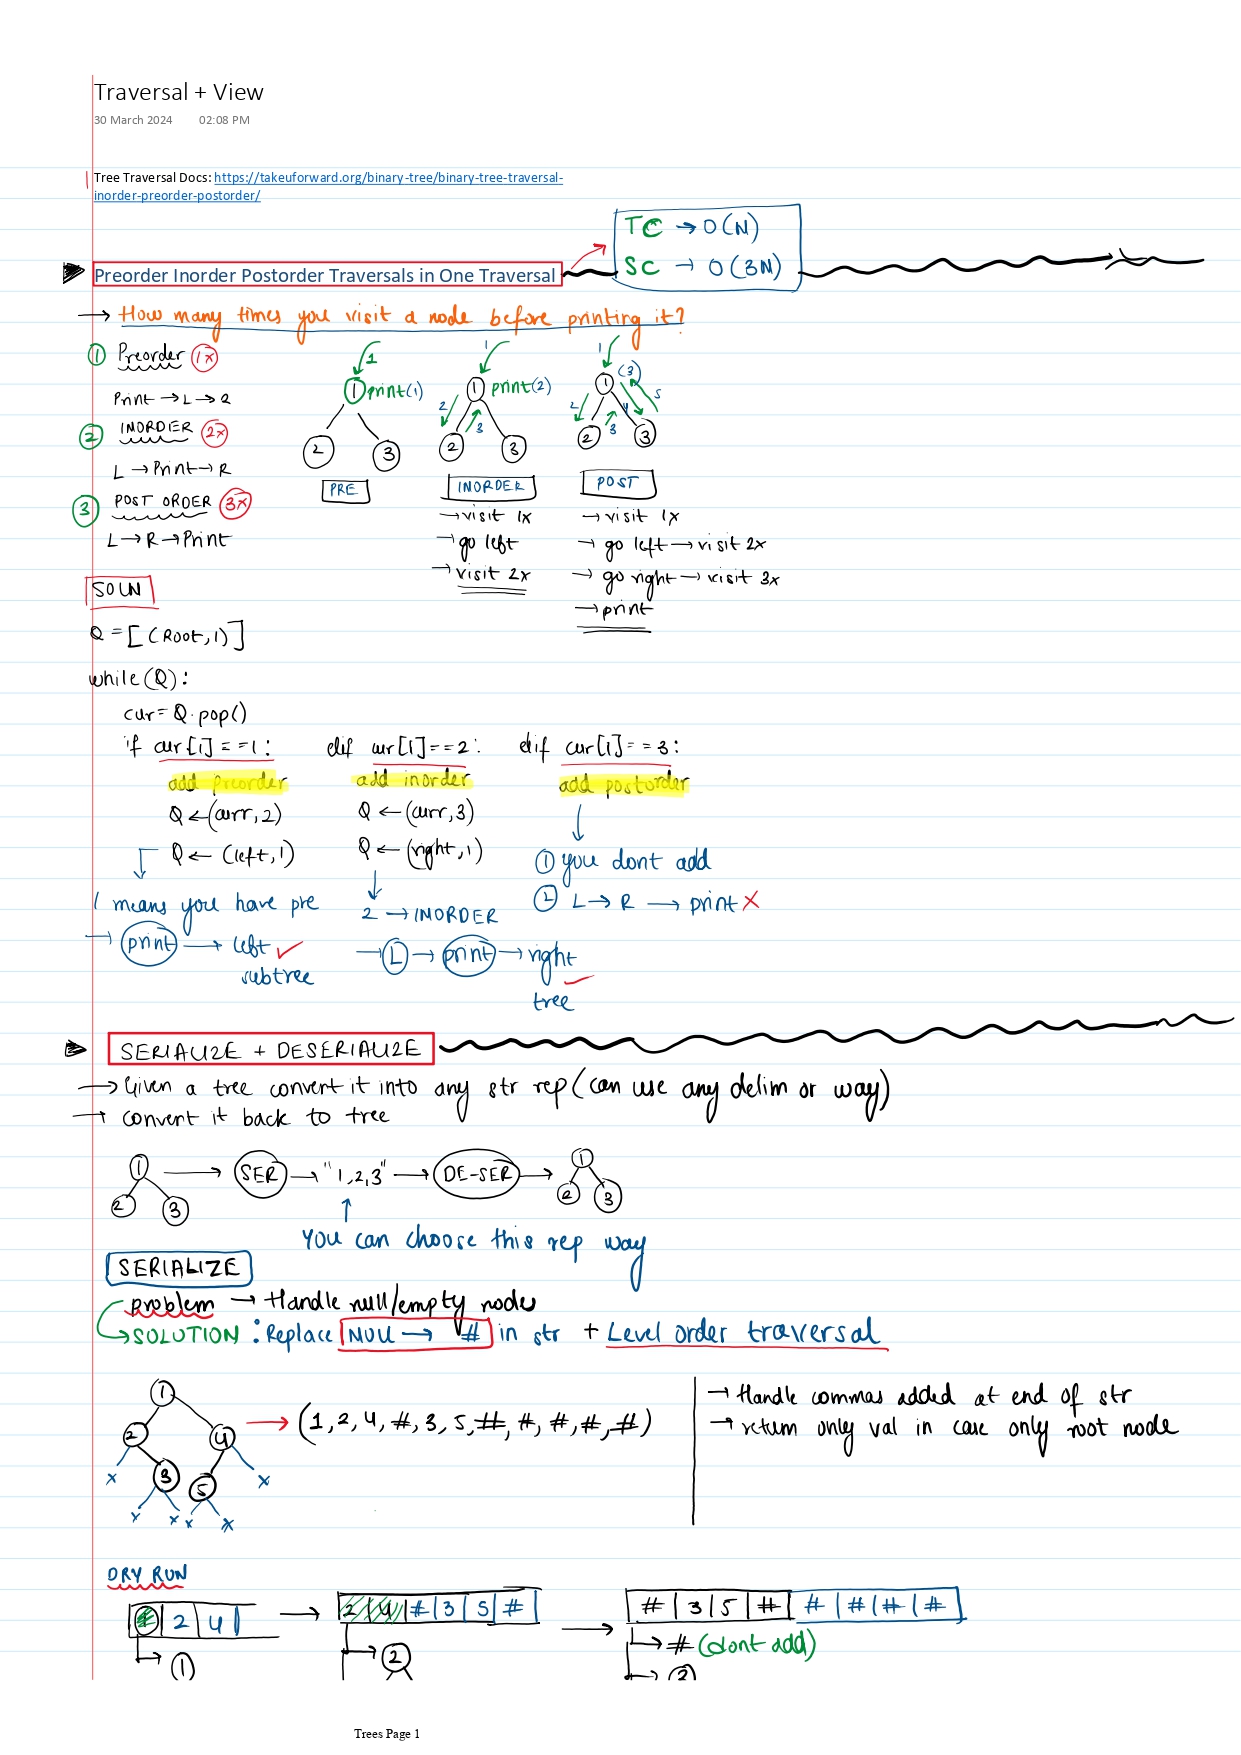 Traversal + View
30 March 2024 02:08 PM
Tree Traversal Docs: https://takeuforward.org/binary-tree/binary-tree-traversal-
inorder-preorder-postorder/
TC → O(N)
SC → O(3N)
Preorder Inorder Postorder Traversals in One Traversal
→ How many times you visit a node before printing it?
① Preorder 1x
Print → L → R
② INORDER 2x
L → Print → R
③ POST ORDER 3x
L → R → Print
1
1 print(1)
2 3
PRE
1
1 print(2)
2 3
2 3
INORDER
→ visit 1x
→ go left
→ visit 2x
1
1 (3)
2 3 4 5
2 3
POST
→ visit 1x
→ go left → visit 2x
→ go right → visit 3x
→ print
SOLN
Q = [(Root,1)]
while(Q):
cur = Q.pop()
if cur[1] == 1: elif cur[1] == 2: elif cur[1] == 3:
add preorder add inorder add postorder
Q ← (curr,2) Q ← (curr,3)
Q ← (left,1) Q ← (right,1)
① you dont add
② L → R → print X
1 means you have pre
→ print → left ✓
subtree
2 → INORDER
→ L → print → right
tree ✓
SERIALIZE + DESERIALIZE
→ Given a tree convert it into any str rep (can use any delim or way)
→ convert it back to tree
1 → SER → "1,2,3" → DE-SER → 1
2 3 2 3
↑
You can choose this rep way
SERIALIZE
problem → Handle null/empty nodes
→ SOLUTION : Replace NULL → # in str + Level order traversal
1
2 4
3 5
x x
x x x x
→ (1,2,4,#,3,5,#,#,#,#,#)
→ Handle commas added at end of str
→ return only val in case only root node
DRY RUN
1 | 2 | 4 | → 2 | 4 | # | 3 | 5 | # | → # | 3 | 5 | # | # | # | # | # |
→ 1
→ 2
→ # (dont add)
Trees Page 1